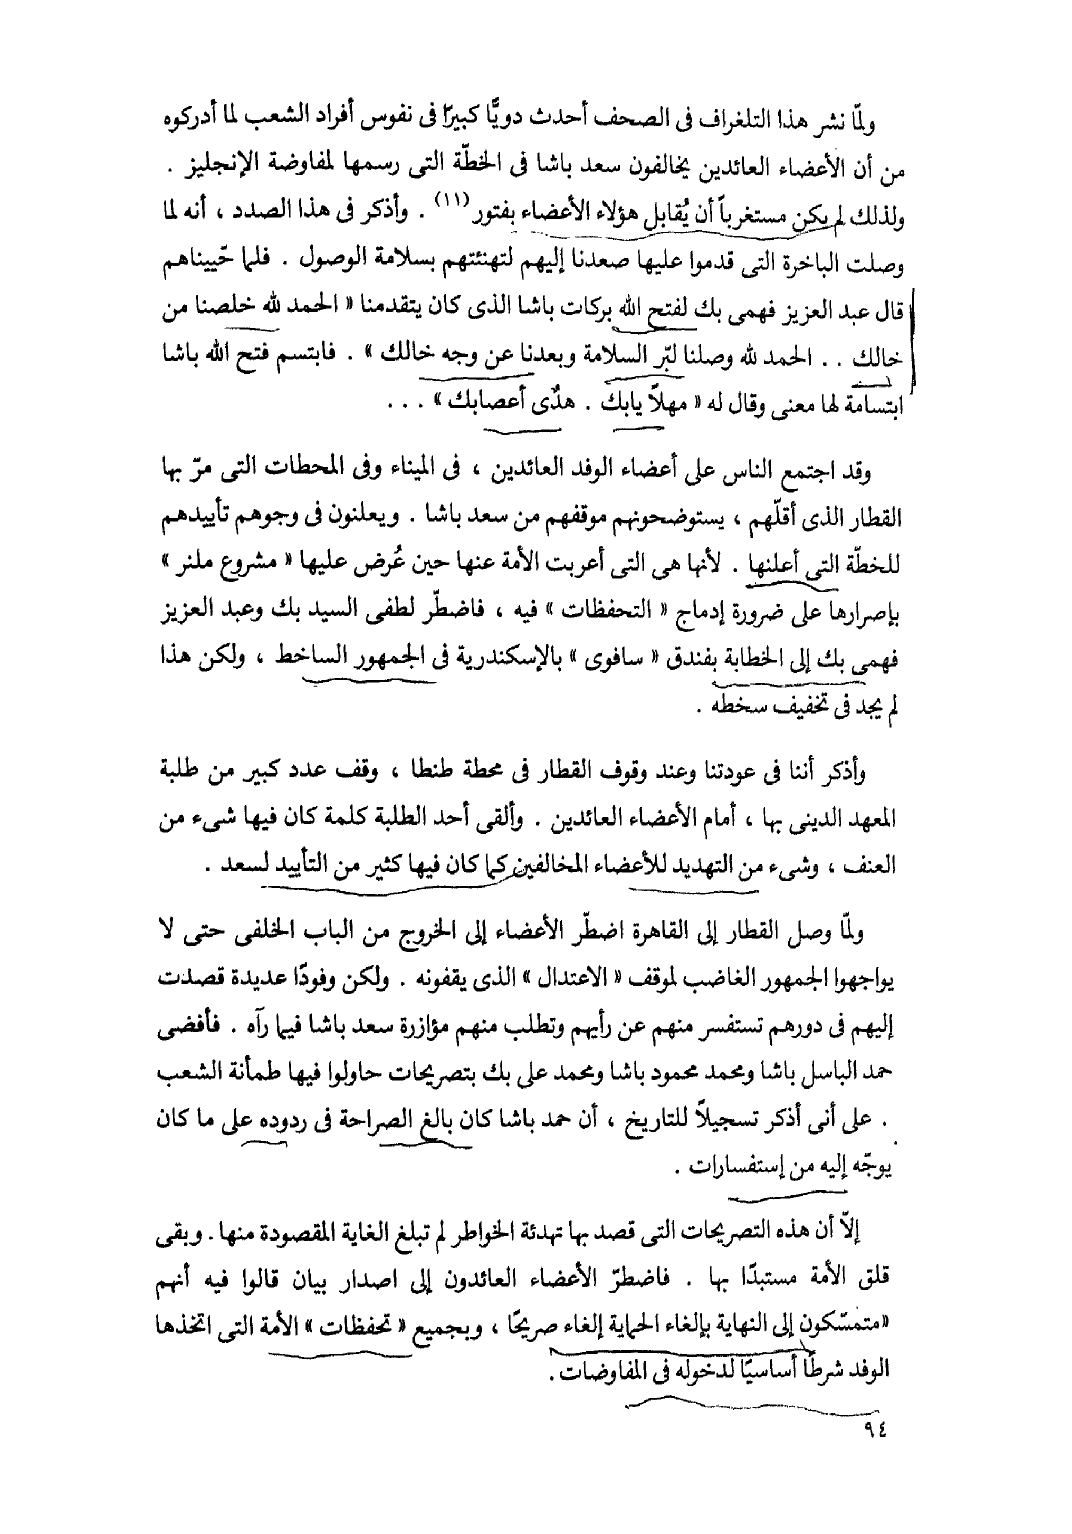 ولمّا نشر هذا التلغراف فى الصحف أحدث دويًّا كبيرًا فى نفوس أفراد الشعب لما أدركوه
من أن الأعضاء العائدين يخالفون سعد باشا فى الخطّة التى رسمها لمفاوضة الإنجليز .
ولذلك لم يكن مستغرباً أن يُقابل هؤلاء الأعضاء بفتور (١١) . وأذكر فى هذا الصدد ، أنه لما
وصلت الباخرة التى قدموا عليها صعدنا إليهم لتهنئتهم بسلامة الوصول . فلما حّييناهم
قال عبد العزيز فهمى بك لفتح الله بركات باشا الذى كان يتقدمنا « الحمد لله خلصنا من
خالك . . الحمد لله وصلنا لبّر السلامة وبعدنا عن وجه خالك » . فابتسم فتح الله باشا
ابتسامة لها معنى وقال له « مهلاً يابك . هدّى أعصابك » . . .
وقد اجتمع الناس على أعضاء الوفد العائدين ، فى الميناء وفى المحطات التى مرّ بها
القطار الذى أقلّهم ، يستوضحونهم موقفهم من سعد باشا . ويعلنون فى وجوهم تأييدهم
للخطّة التى أعلنها . لأنها هى التى أعربت الأمة عنها حين عُرض عليها « مشروع ملنر »
بإصرارها على ضرورة إدماج « التحفظات » فيه ، فاضطّر لطفى السيد بك وعبد العزيز
فهمى بك إلى الخطابة بفندق « سافوى » بالإسكندرية فى الجمهور الساخط ، ولكن هذا
لم يجد فى تخفيف سخطه .
وأذكر أننا فى عودتنا وعند وقوف القطار فى محطة طنطا ، وقف عدد كبير من طلبة
المعهد الدينى بها ، أمام الأعضاء العائدين . وألقى أحد الطلبة كلمة كان فيها شىء من
العنف ، وشىء من التهديد للأعضاء المخالفين كما كان فيها كثير من التأييد لسعد .
ولمّا وصل القطار إلى القاهرة اضطّر الأعضاء إلى الخروج من الباب الخلفى حتى لا
يواجهوا الجمهور الغاضب لموقف « الاعتدال » الذى يقفونه . ولكن وفودًا عديدة قصدت
إليهم فى دورهم تستفسر منهم عن رأيهم وتطلب منهم مؤازرة سعد باشا فيما رآه . فأفضى
حمد الباسل باشا ومحمد محمود باشا ومحمد على بك بتصريحات حاولوا فيها طمأنة الشعب
. على أنى أذكر تسجيلاً للتاريخ ، أن حمد باشا كان بالغ الصراحة فى ردوده على ما كان
يوجّه إليه من إستفسارات .
إلاّ أن هذه التصريحات التى قصد بها تهدئة الخواطر لم تبلغ الغاية المقصودة منها . وبقى
قلق الأمة مستبدًا بها . فاضطرّ الأعضاء العائدون إلى اصدار بيان قالوا فيه أنهم
«متمسّكون إلى النهاية بإلغاء الحماية إلغاء صريحًا ، وبجميع « تحفظات » الأمة التى اتخذها
الوفد شرطًا أساسيًا لدخوله فى المفاوضات .
٩٤